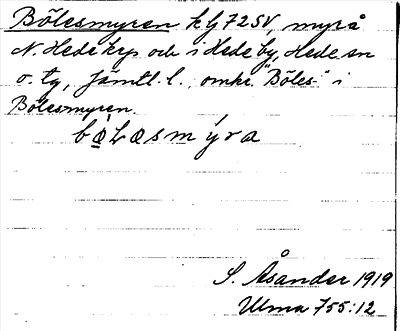 Bölesmyren kfg 72SV, myrå
N. Hede krp och i Hede by, Hede sn
o. tg, Jämtl. l., omkr. "Böles" i
Bölesmyren.
S. Åsander 1919
Ulma 755:12